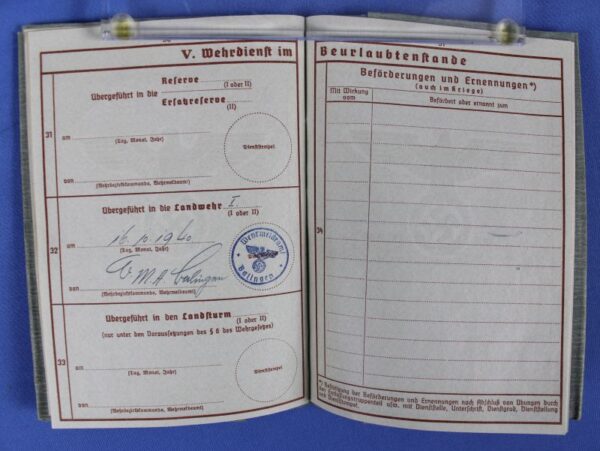 V. Wehrdienst im
Reserve
(I oder II)
Übergeführt in die
Ersatzreserve
(II)
31
am
(Tag, Monat, Jahr)
Dienststempel
von
(Wehrbezirkskommando, Wehrmeldeamt)
Übergeführt in die Landwehr I.
(I oder II)
32
am 16.10.1940
(Tag, Monat, Jahr)
Wehrmeldeamt
Balingen
von W.M.A. Balingen
(Wehrbezirkskommando, Wehrmeldeamt)
Übergeführt in den Landsturm
(I oder II)
(nur unter den Voraussetzungen des § 6 des Wehrgesetzes)
33
am
(Tag, Monat, Jahr)
Dienststempel
von
(Wehrbezirkskommando, Wehrmeldeamt)
Beurlaubtenstande
Beförderungen und Ernennungen*)
(auch im Kriege)
Mit Wirkung
vom
Befördert oder ernannt zum
34
*) Bestätigung der Beförderungen und Ernennungen nach Abschluß von Übungen durch
den Entlassungstruppenteil usw. mit Dienststelle, Unterschrift, Dienstgrad, Dienststellung
und Dienststempel.